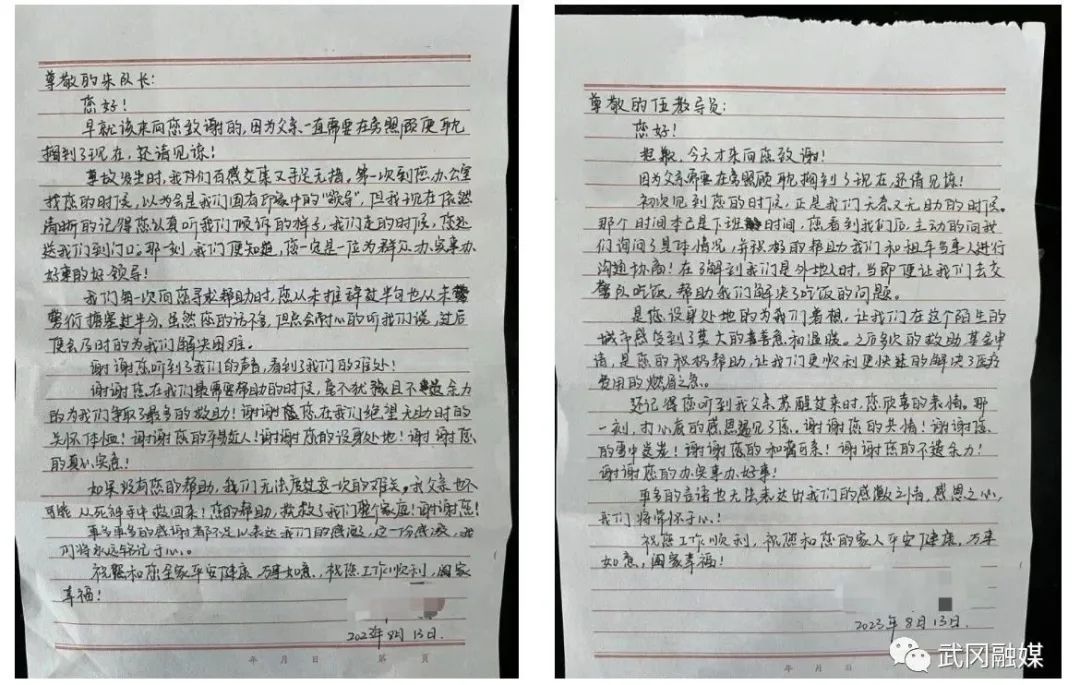 尊敬的朱队长：
您好！
早就该来向您致谢的，因为父亲一直需要在旁照顾便耽
搁到了现在，还请见谅！
事故发生时，我们百感交集又手足无措，第一次到您办公室
找您的时候，以为会是我们固有印象中的“领导”，但我现在依然
清晰的记得您认真听我们倾诉的样子，我们走的时候，您还
送我们到门口。那一刻，我们便知道，您一定是一位为群众办实事办
好事的好领导！
我们每一次向您寻求帮助时，您从未推辞过半句也从未
敷衍搪塞过半分。虽然您的话不多，但总会耐心的听我们说，过后
便会及时的为我们解决困难。
谢谢您听到了我们的声音，看到了我们的难处！
谢谢您在我们最需要帮助的时候，毫不犹豫且不遗余力
的为我们争取了最多的救助！谢谢您在我们绝望无助时的
关怀体恤！谢谢您的平易近人！谢谢您的设身处地！谢谢您
的真心实意！
如果没有您的帮助，我们无法度过这一次的难关。我父亲也不
可能从死神手中救回来！您的帮助，拯救了我们整个家庭！谢谢您！
再多再多的感谢都不足以表达我们的感激，这一份感激，我
们将永远铭记于心。
祝愿和您全家平安健康，万事如意，祝您工作顺利，阖家
幸福！
2023年8月13日.
年 月 日 第 頁
尊敬的伍教导员：
您好！
抱歉，今天才来向您致谢！
因为父亲需要在旁照顾耽搁到了现在，还请见谅！
初次见到您的时候，正是我们无亲又无助的时候。
那个时间本已是下班时间，您看到我们后，主动的向我
们询问了具体情况，并积极的帮助我们和租车当事人进行
沟通协商！在了解到我们是外地人时，当即便让我们去交
警队吃饭，帮助我们解决了吃饭的问题。
是您设身处地的为我们着想，让我们在这个陌生的
城市感受到了莫大的善意和温暖。之后多次的救助基金申
请，是您的积极帮助，让我们更顺利更快速的解决了医疗
费用的燃眉之急。
还记得您听到我父亲苏醒过来时，您欣喜的表情。那
一刻，打心底的感恩遇见了您。谢谢您的共情！谢谢您
的雪中送炭！谢谢您的和蔼可亲！谢谢您的不遗余力！
谢谢您的办实事办好事！
再多的言语也无法表达出我们的感激之情，感恩之心，
我们将常怀于心！
祝您工作顺利，祝您和您的家人平安健康，万事
如意，阖家幸福！
2023年8月13日.
年 月 日
武冈融媒